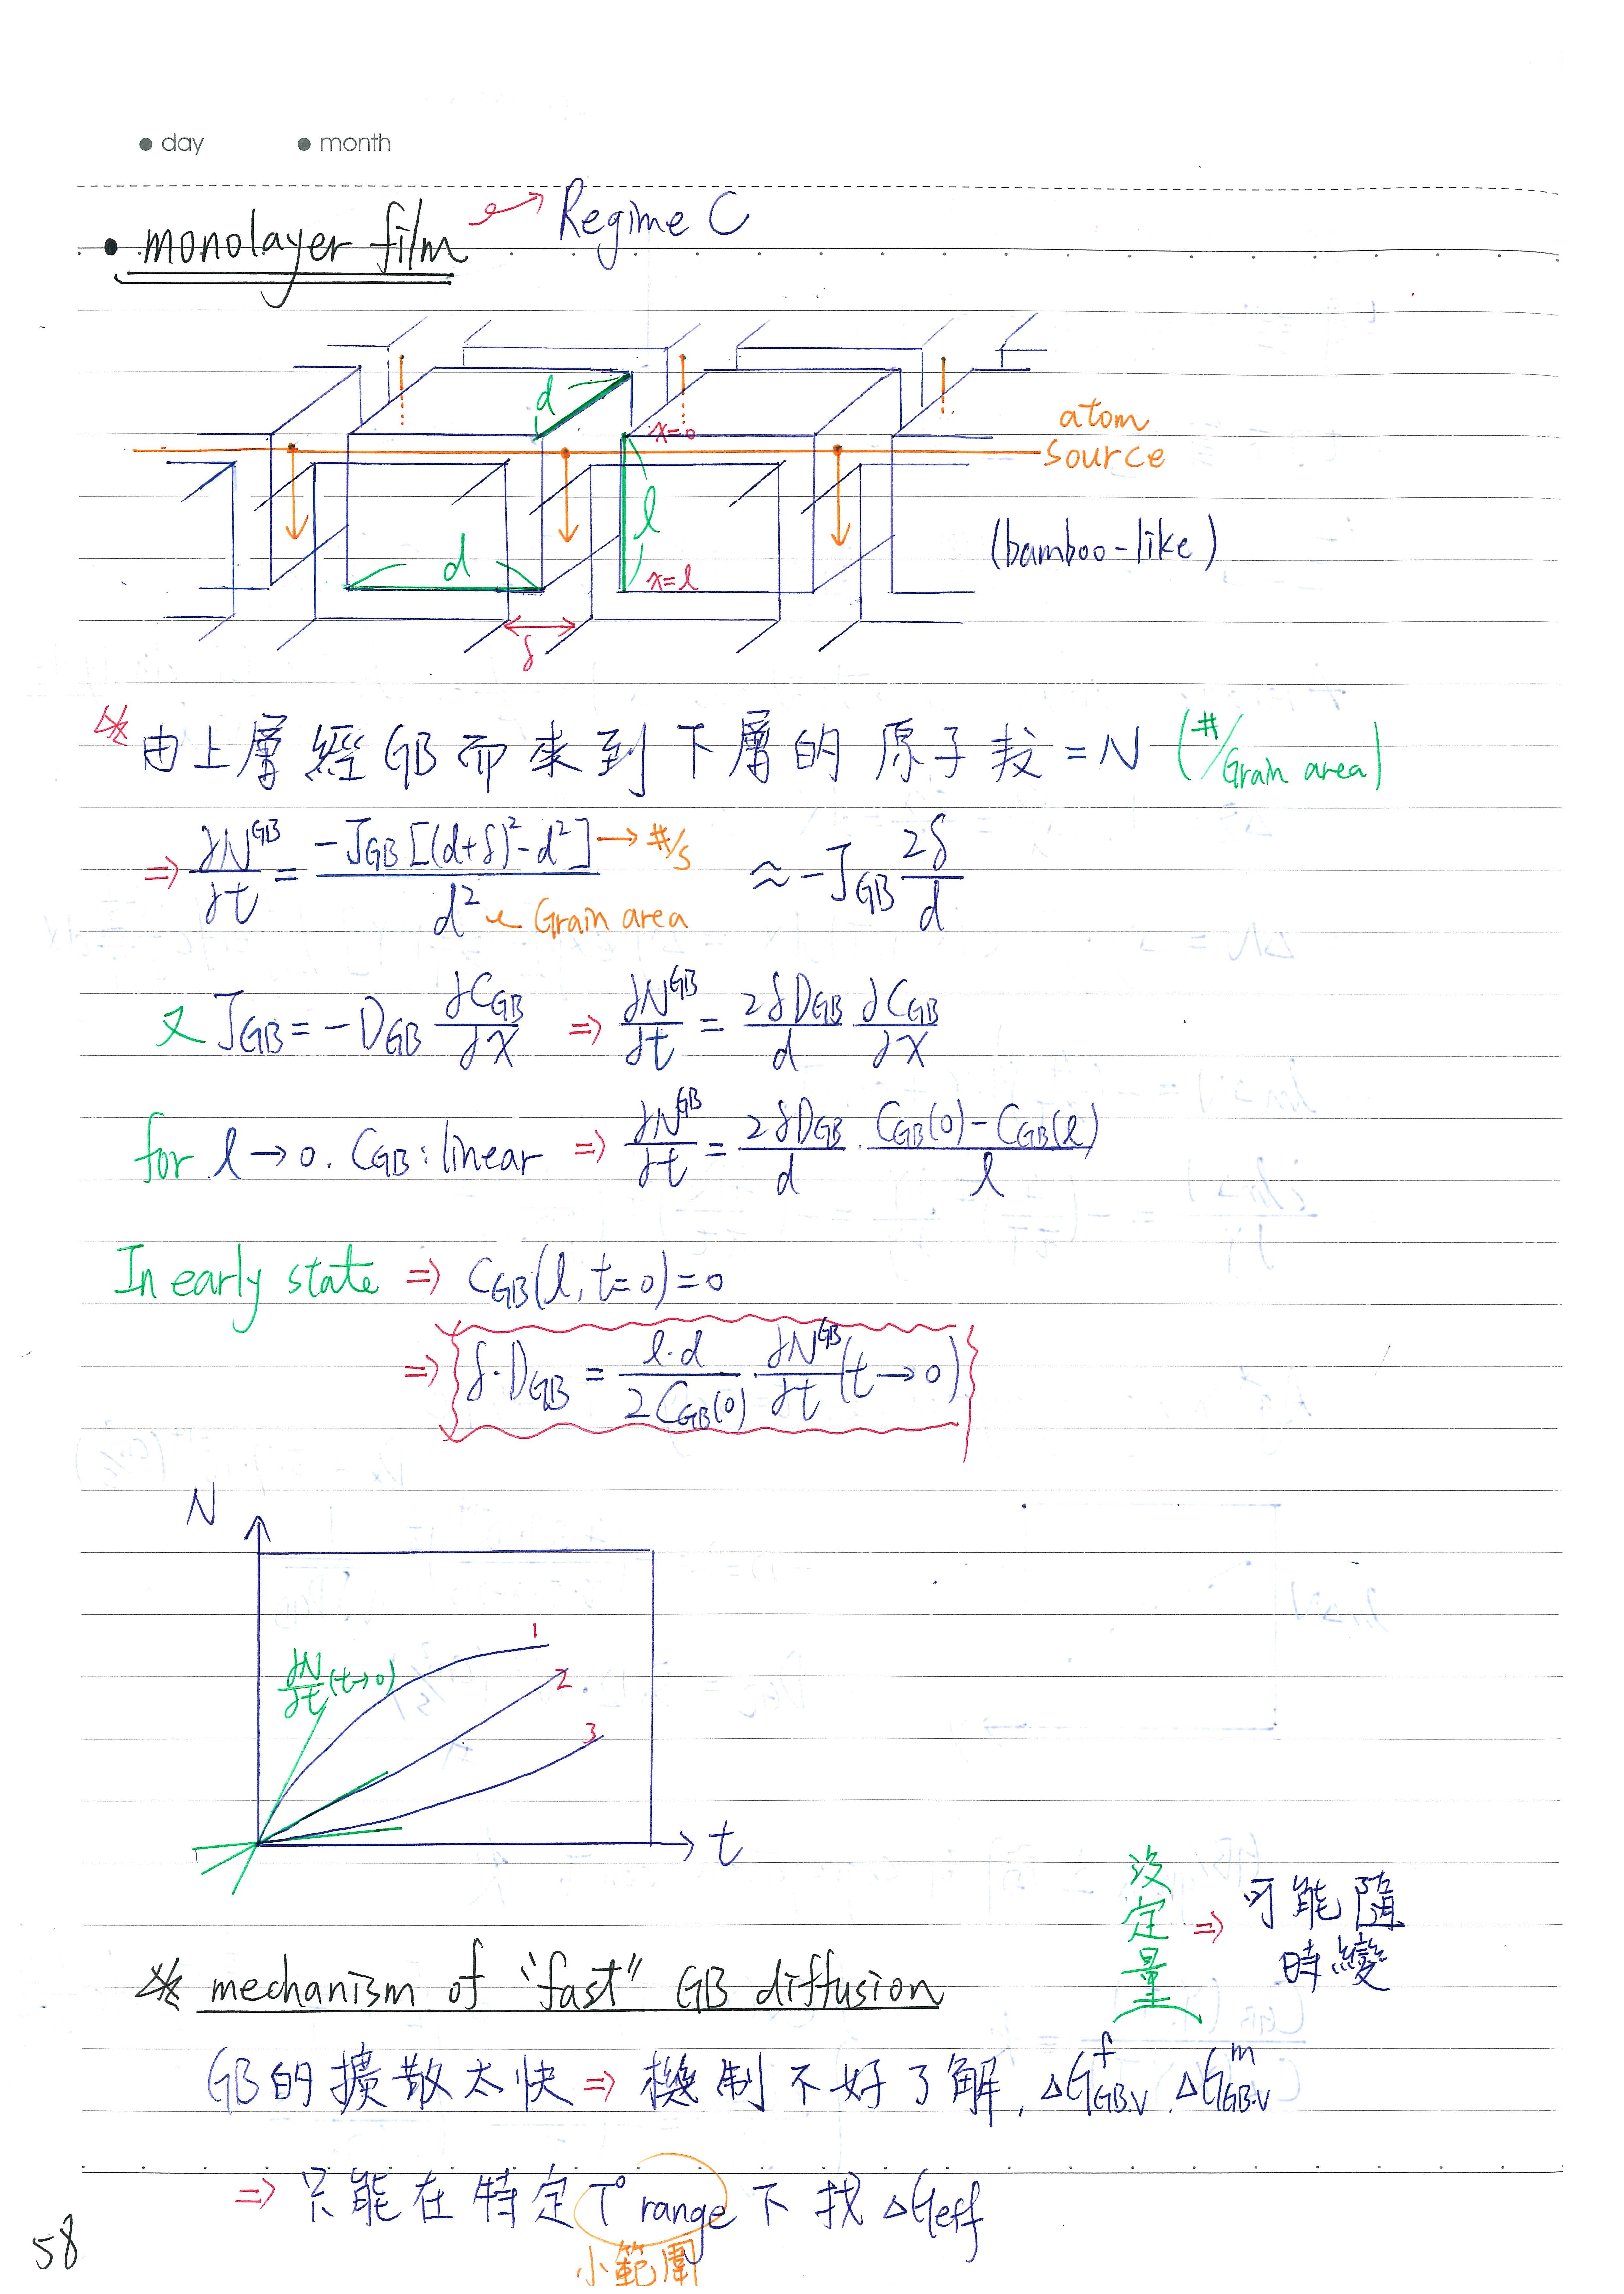 ● day ● month
• monolayer film → Regime C
d
x=0
atom
source
l
(bamboo-like)
d
x=l
δ
※ 由上層經GB而來到下層的原子數=N (#/Grain area)
⇒ ∂N^GB/∂t = -J_GB[(d+δ)²-d²]/d² → #/s ← Grain area ≈ -J_GB 2δ/d
又 J_GB = -D_GB ∂C_GB/∂x ⇒ ∂N^GB/∂t = 2δD_GB/d ∂C_GB/∂x
for l→0. C_GB: linear ⇒ ∂N^GB/∂t = 2δD_GB/d · C_GB(0)-C_GB(l)/l
In early state ⇒ C_GB(l, t=0)=0
⇒ δ·D_GB = l·d/2C_GB(0) ∂N^GB/∂t (t→0)
N
1
∂N/∂t (t→0)
2
3
t
沒定量 ⇒ 可能隨時變
※ mechanism of "fast" GB diffusion
GB的擴散太快 ⇒ 機制不好了解, ΔG^f_GB.V, ΔG^m_GB.V
⇒ 只能在特定 T° range 下找 ΔGeff
小範圍
58